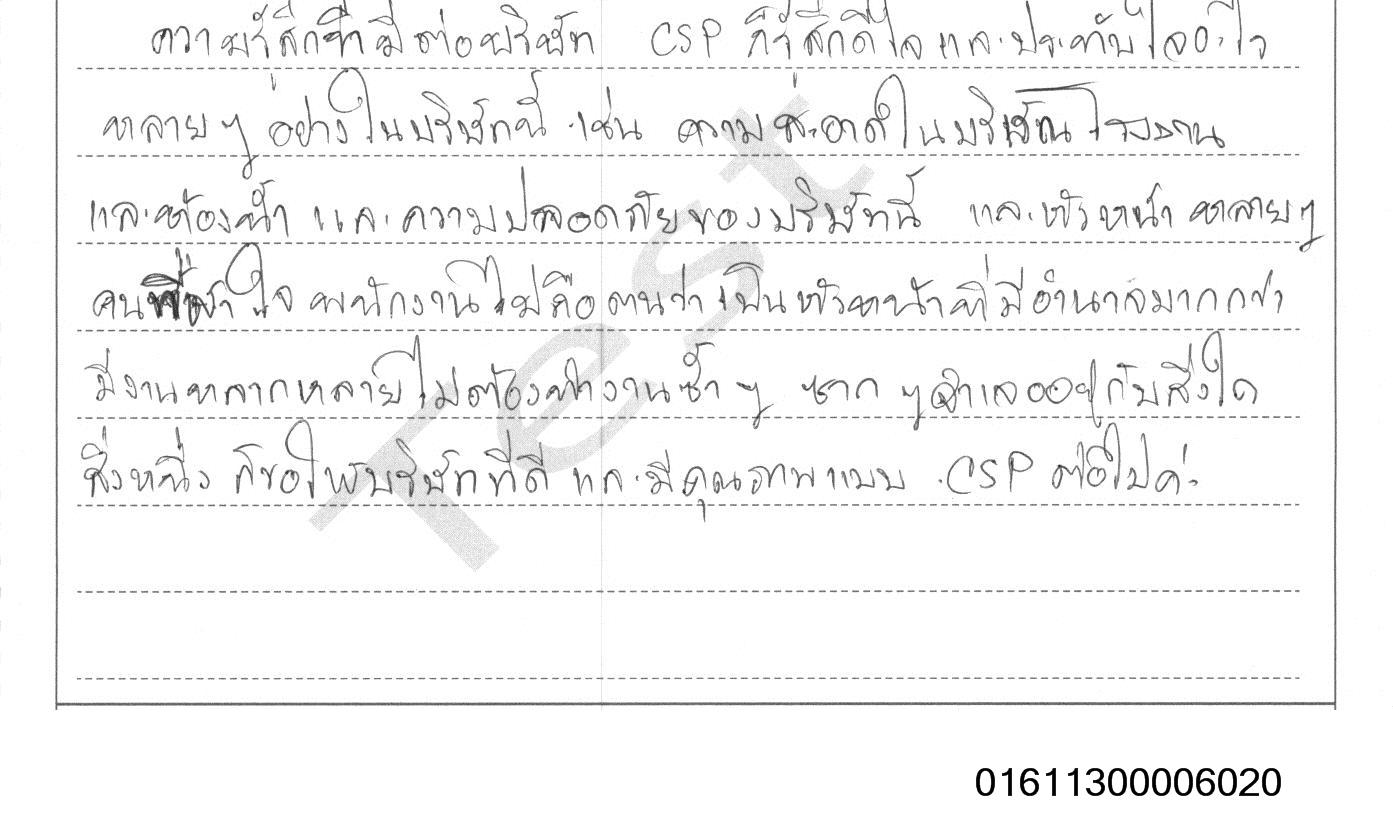 ความรู้สึกที่มีต่อบริษัท CSP ก็รู้สึกดีใจ และประทับใจอะไร
หลายๆ อย่างในบริษัทนี้ เช่น ความสะอาดในบริษัท โรงงาน
และห้องน้ำ และความปลอดภัยของบริษัทนี้ และหัวหน้า หลายๆ
คน เข้าใจ พนักงานไม่ถือตนว่าเป็นหัวหน้าที่มีอำนาจมากกว่า
มีงานหลากหลายไม่ต้องทำงานซ้ำๆ ซากๆ จำเจอยู่กับสิ่งใด
สิ่งหนึ่ง ก็ขอให้บริษัทที่ดี และมีคุณภาพแบบ CSP ต่อไปค่ะ
Test
01611300006020